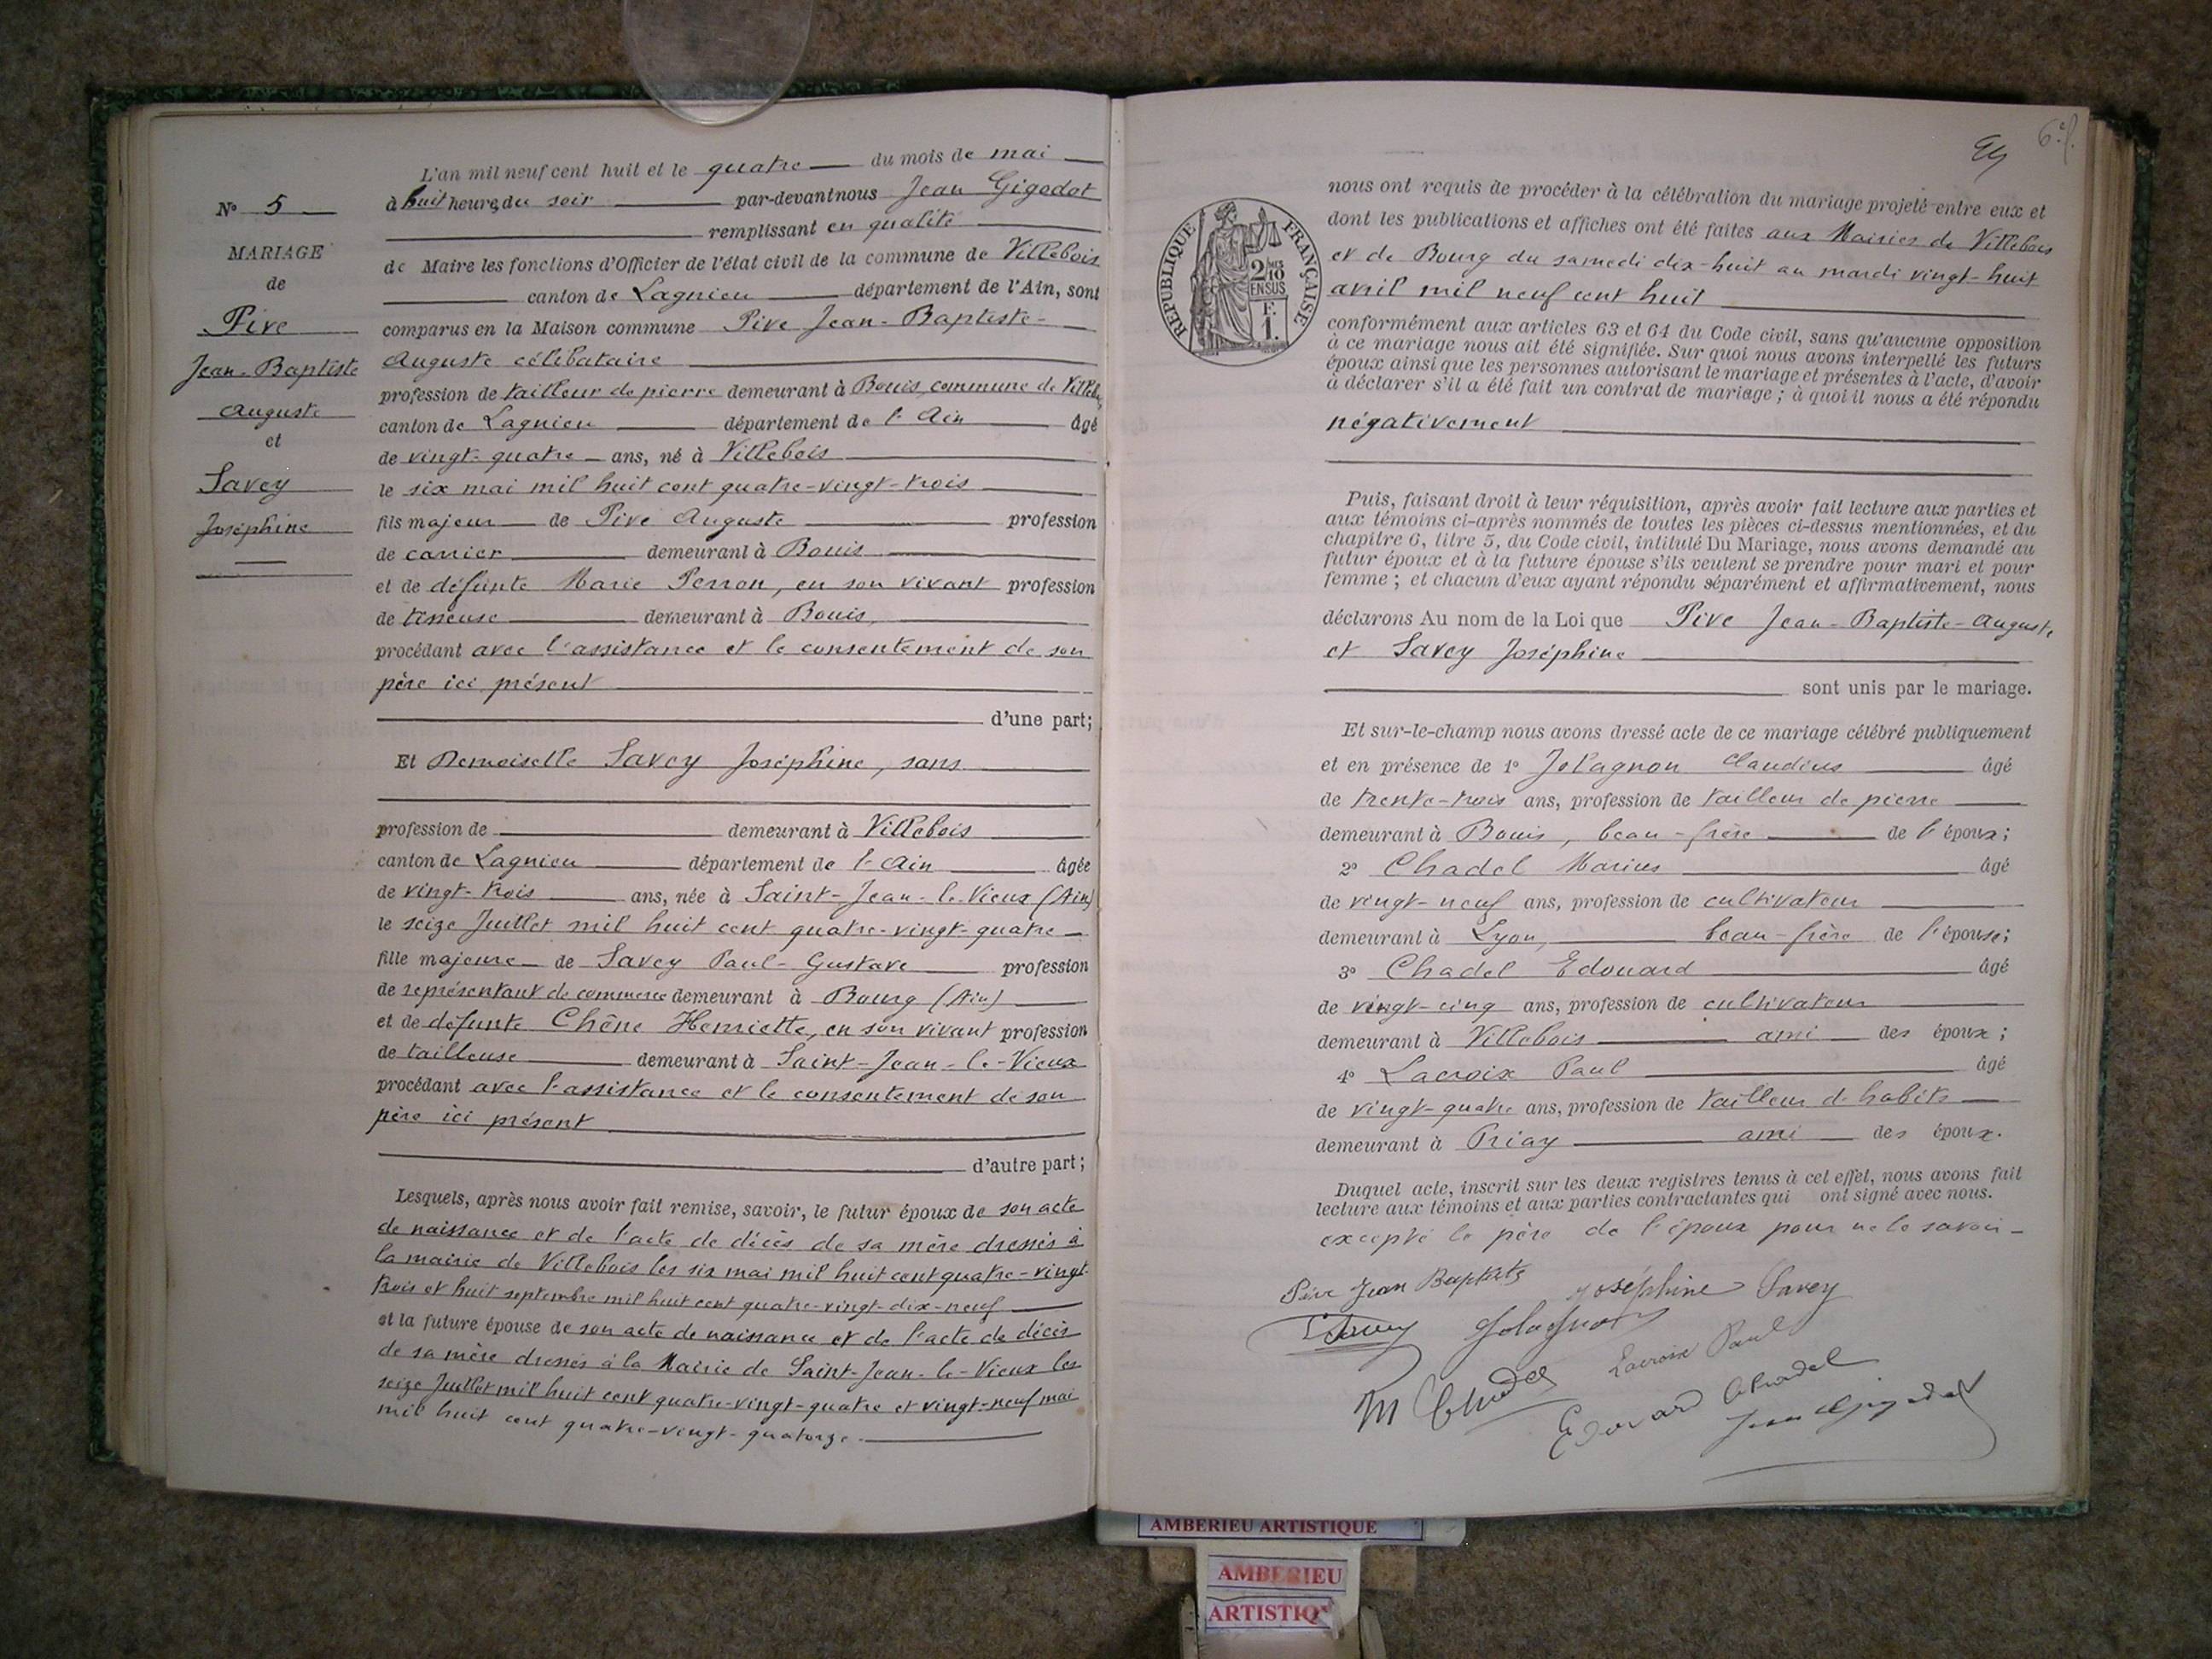 L'an mil neuf cent huit et le quatre du mois de mai
à huit heures du soir par-devant nous Jean Gigodot
remplissant en qualité
de Maire les fonctions d'Officier de l'état civil de la commune de Villebois
canton de Lagnieu département de l'Ain, sont
comparus en la Maison commune Pive Jean-Baptiste-
Auguste célibataire
profession de tailleur de pierre demeurant à Bouis, commune de
canton de Lagnieu département de l'Ain âgé
de vingt-quatre ans, né à Villebois
le six mai mil huit cent quatre-vingt-trois
fils majeur de Pive Auguste profession
de carrier demeurant à Bouis
et de défunte Marie Perron, en son vivant profession
de tisseuse demeurant à Bouis,
procédant avec l'assistance et le consentement de son
père ici présent
d'une part;
Et Demoiselle Savey Joséphine, sans
profession de demeurant à Villebois
canton de Lagnieu département de l'Ain âgée
de vingt-trois ans, née à Saint-Jean-le-Vieux (Ain)
le seize Juillet mil huit cent quatre-vingt-quatre
fille majeure de Savey Paul-Gustave profession
de représentant de commerce demeurant à Bourg (Ain)
et de défunte Chêne Henriette, en son vivant profession
de tailleuse demeurant à Saint-Jean-le-Vieux
procédant avec l'assistance et le consentement de son
père ici présent
d'autre part;
Lesquels, après nous avoir fait remise, savoir, le futur époux de son acte
de naissance et de l'acte de décès de sa mère dressés à
la mairie de Villebois les six mai mil huit cent quatre-vingt-
trois et huit septembre mil huit cent quatre-vingt-dix-neuf
et la future épouse de son acte de naissance et de l'acte de décès
de sa mère dressés à la Mairie de Saint-Jean-le-Vieux les
seize Juillet mil huit cent quatre-vingt-quatre et vingt-neuf mai
mil huit cent quatre-vingt-quatorze.
N° 5
MARIAGE
de
Pive
Jean-Baptiste
Auguste
et
Savey
Joséphine
6
RÉPUBLIQUE FRANÇAISE
nous ont requis de procéder à la célébration du mariage projeté entre eux et
dont les publications et affiches ont été faites aux Mairies de Villebois
et de Bourg du samedi dix-huit au mardi vingt-huit
avril mil neuf cent huit
conformément aux articles 63 et 64 du Code civil, sans qu'aucune opposition
à ce mariage nous ait été signifiée. Sur quoi nous avons interpellé les futurs
époux ainsi que les personnes autorisant le mariage et présentes à l'acte, d'avoir
à déclarer s'il a été fait un contrat de mariage ; à quoi il nous a été répondu
négativement
Puis, faisant droit à leur réquisition, après avoir fait lecture aux parties et
aux témoins ci-après nommés de toutes les pièces ci-dessus mentionnées, et du
chapitre 6, titre 5, du Code civil, intitulé Du Mariage, nous avons demandé au
futur époux et à la future épouse s'ils veulent se prendre pour mari et pour
femme ; et chacun d'eux ayant répondu séparément et affirmativement, nous
déclarons Au nom de la Loi que Pive Jean-Baptiste-Auguste
et Savey Joséphine
sont unis par le mariage.
Et sur-le-champ nous avons dressé acte de ce mariage célébré publiquement
et en présence de 1° Jolagnon Claudius âgé
de trente-trois ans, profession de tailleur de pierre
demeurant à Bouis, beau-frère de l'époux;
2° Chadel Marius âgé
de vingt-neuf ans, profession de cultivateur
demeurant à Lyon, beau-frère de l'épouse;
3° Chadel Edouard âgé
de vingt-cinq ans, profession de cultivateur
demeurant à Villebois ami des époux;
4° Lacroix Paul âgé
de vingt-quatre ans, profession de tailleur d'habits
demeurant à Priay ami des époux.
Duquel acte, inscrit sur les deux registres tenus à cet effet, nous avons fait
lecture aux témoins et aux parties contractantes qui ont signé avec nous.
excepté le père de l'époux pour ne le savoir-
Pive Jean Baptiste Joséphine Savey
Savey Jolagnon
Lacroix Paul
M Chadel
Edouard Chadel
Jean Gigodot
AMBERIEU ARTISTIQUE
AMBERIEU
ARTISTIQ